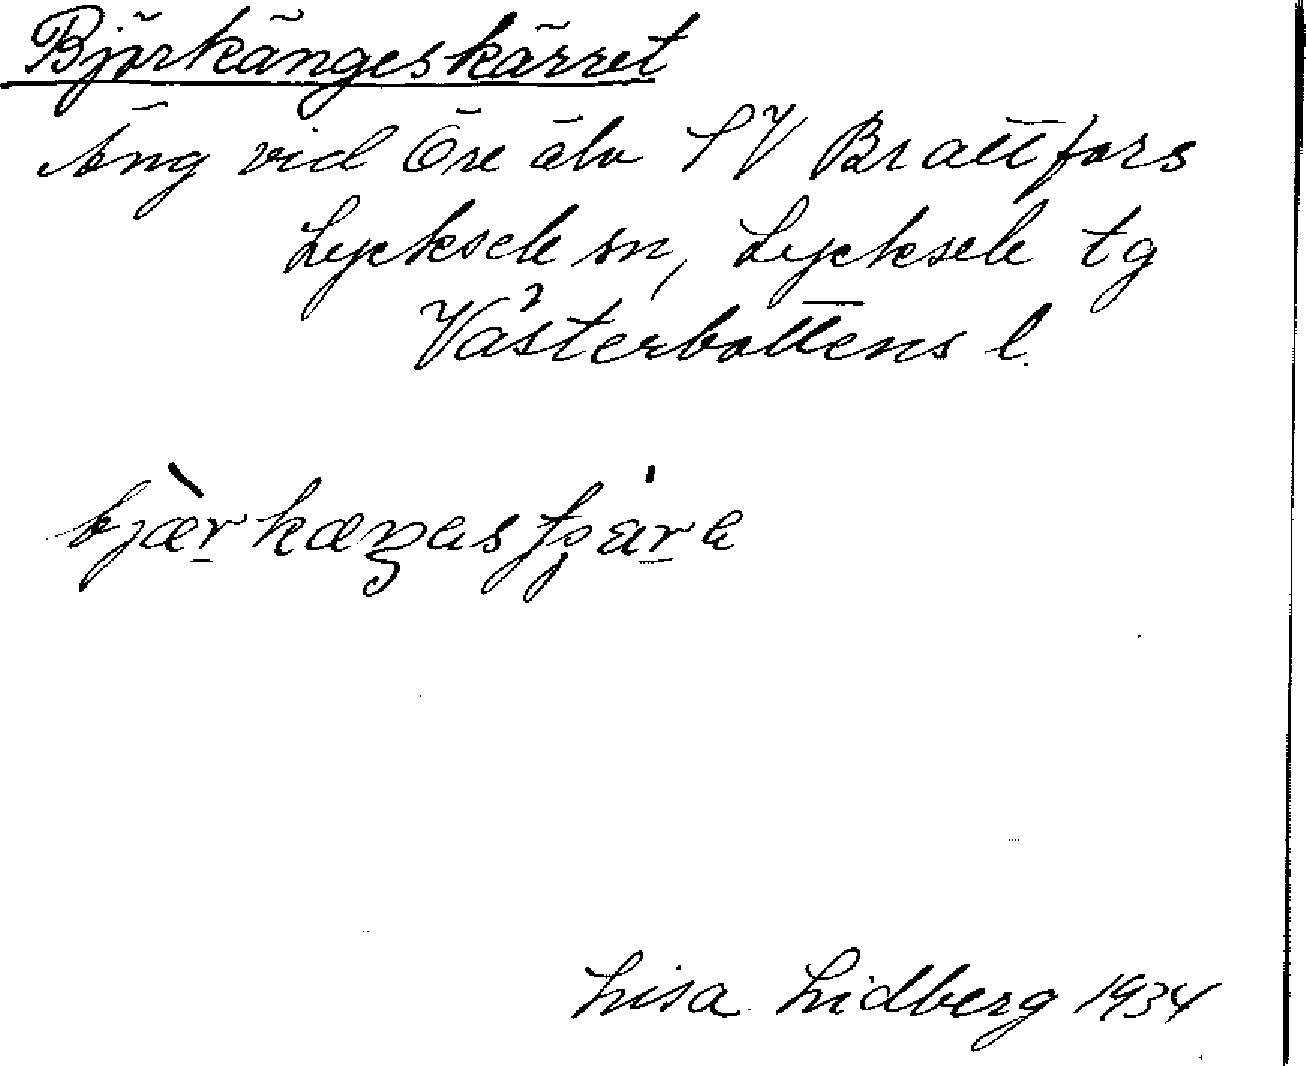 Björkängeskärret
Äng vid Öre älv SV Brattfors
Lycksele sn, Lycksele tg
Västerbottens l.
bjæ̀rkæŋas
Lisa Lidberg 1934